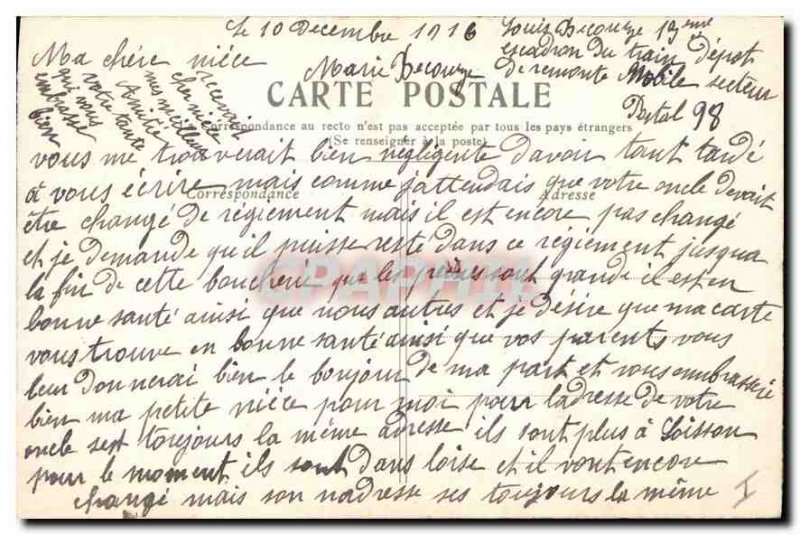 Le 10 Decembre 1916
Louis Decouze 19eme
escadron du train dépôt
de remonte Mobile secteur
Postal 98
Ma chère nièce
Marie Decouze
CARTE POSTALE
Correspondance au recto n'est pas acceptée par tous les pays étrangers
(Se renseigner à la poste)
Correspondance
Adresse
vous me trouverait bien négligente davoir tant tardé
a vous écrire mais comme jattendais que votre oncle devait
être changé de régiement mais il est encore pas changé
et je demande qu'il puisse reste dans ce régiement jusqua
la fin de cette boucherie que les sont grande il est en
bonne santé ainsi que nous autres et je désire que ma carte
vous trouve en bonne santé ainsi que vos parents vous
leur donnerai bien le bonjour de ma part et vous embrasseré
bien ma petite nièce pour moi pour ladresse de votre
oncle sest toujours la même adresse ils sont plus à Soisson
pour le moment ils sont dans loise et il vont encore
changé mais son nadresse ses toujours la même
recevais
cher nièce
mes meilleurs
Amitié
votre tante
qui vous
embrasse
bien